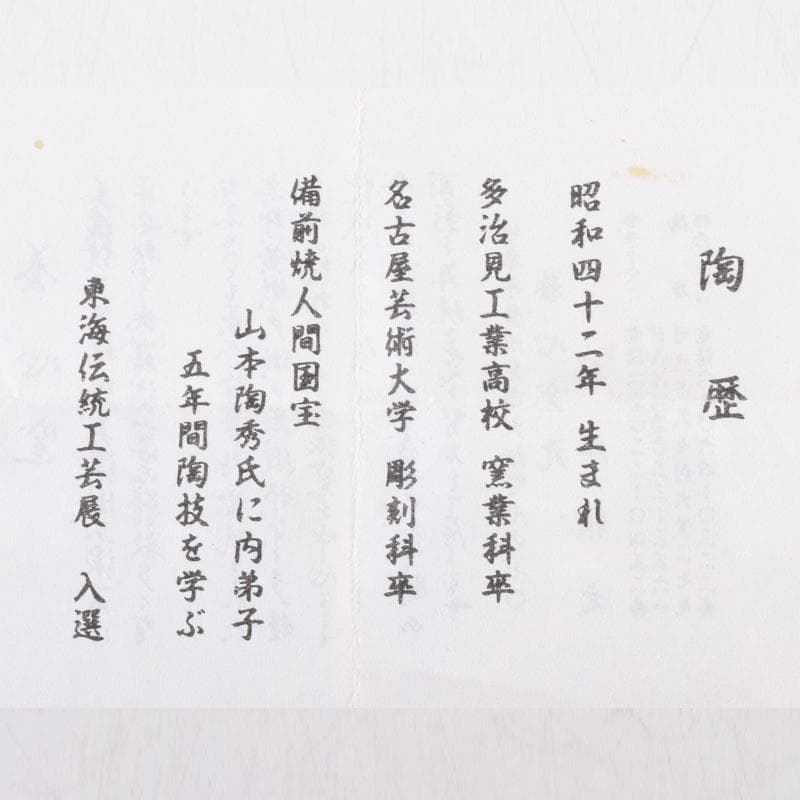 陶歴
昭和四十二年 生まれ
多治見工業高校 窯業科卒
名古屋芸術大学 彫刻科卒
備前焼人間国宝
山本陶秀氏に内弟子
五年間陶技を学ぶ
東海伝統工芸展 入選